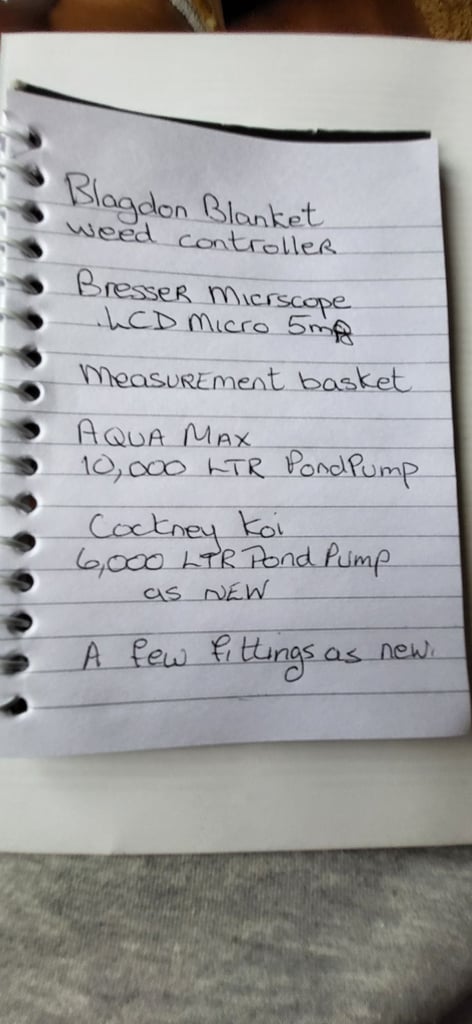 Blagdon Blanket
weed controller
Bresser Micrscope
LCD Micro 5mp
measurement basket
AQUA MAX
10,000 LTR Pond Pump
Cockney Koi
6,000 LTR Pond Pump
as NEW
A few fittings as new.